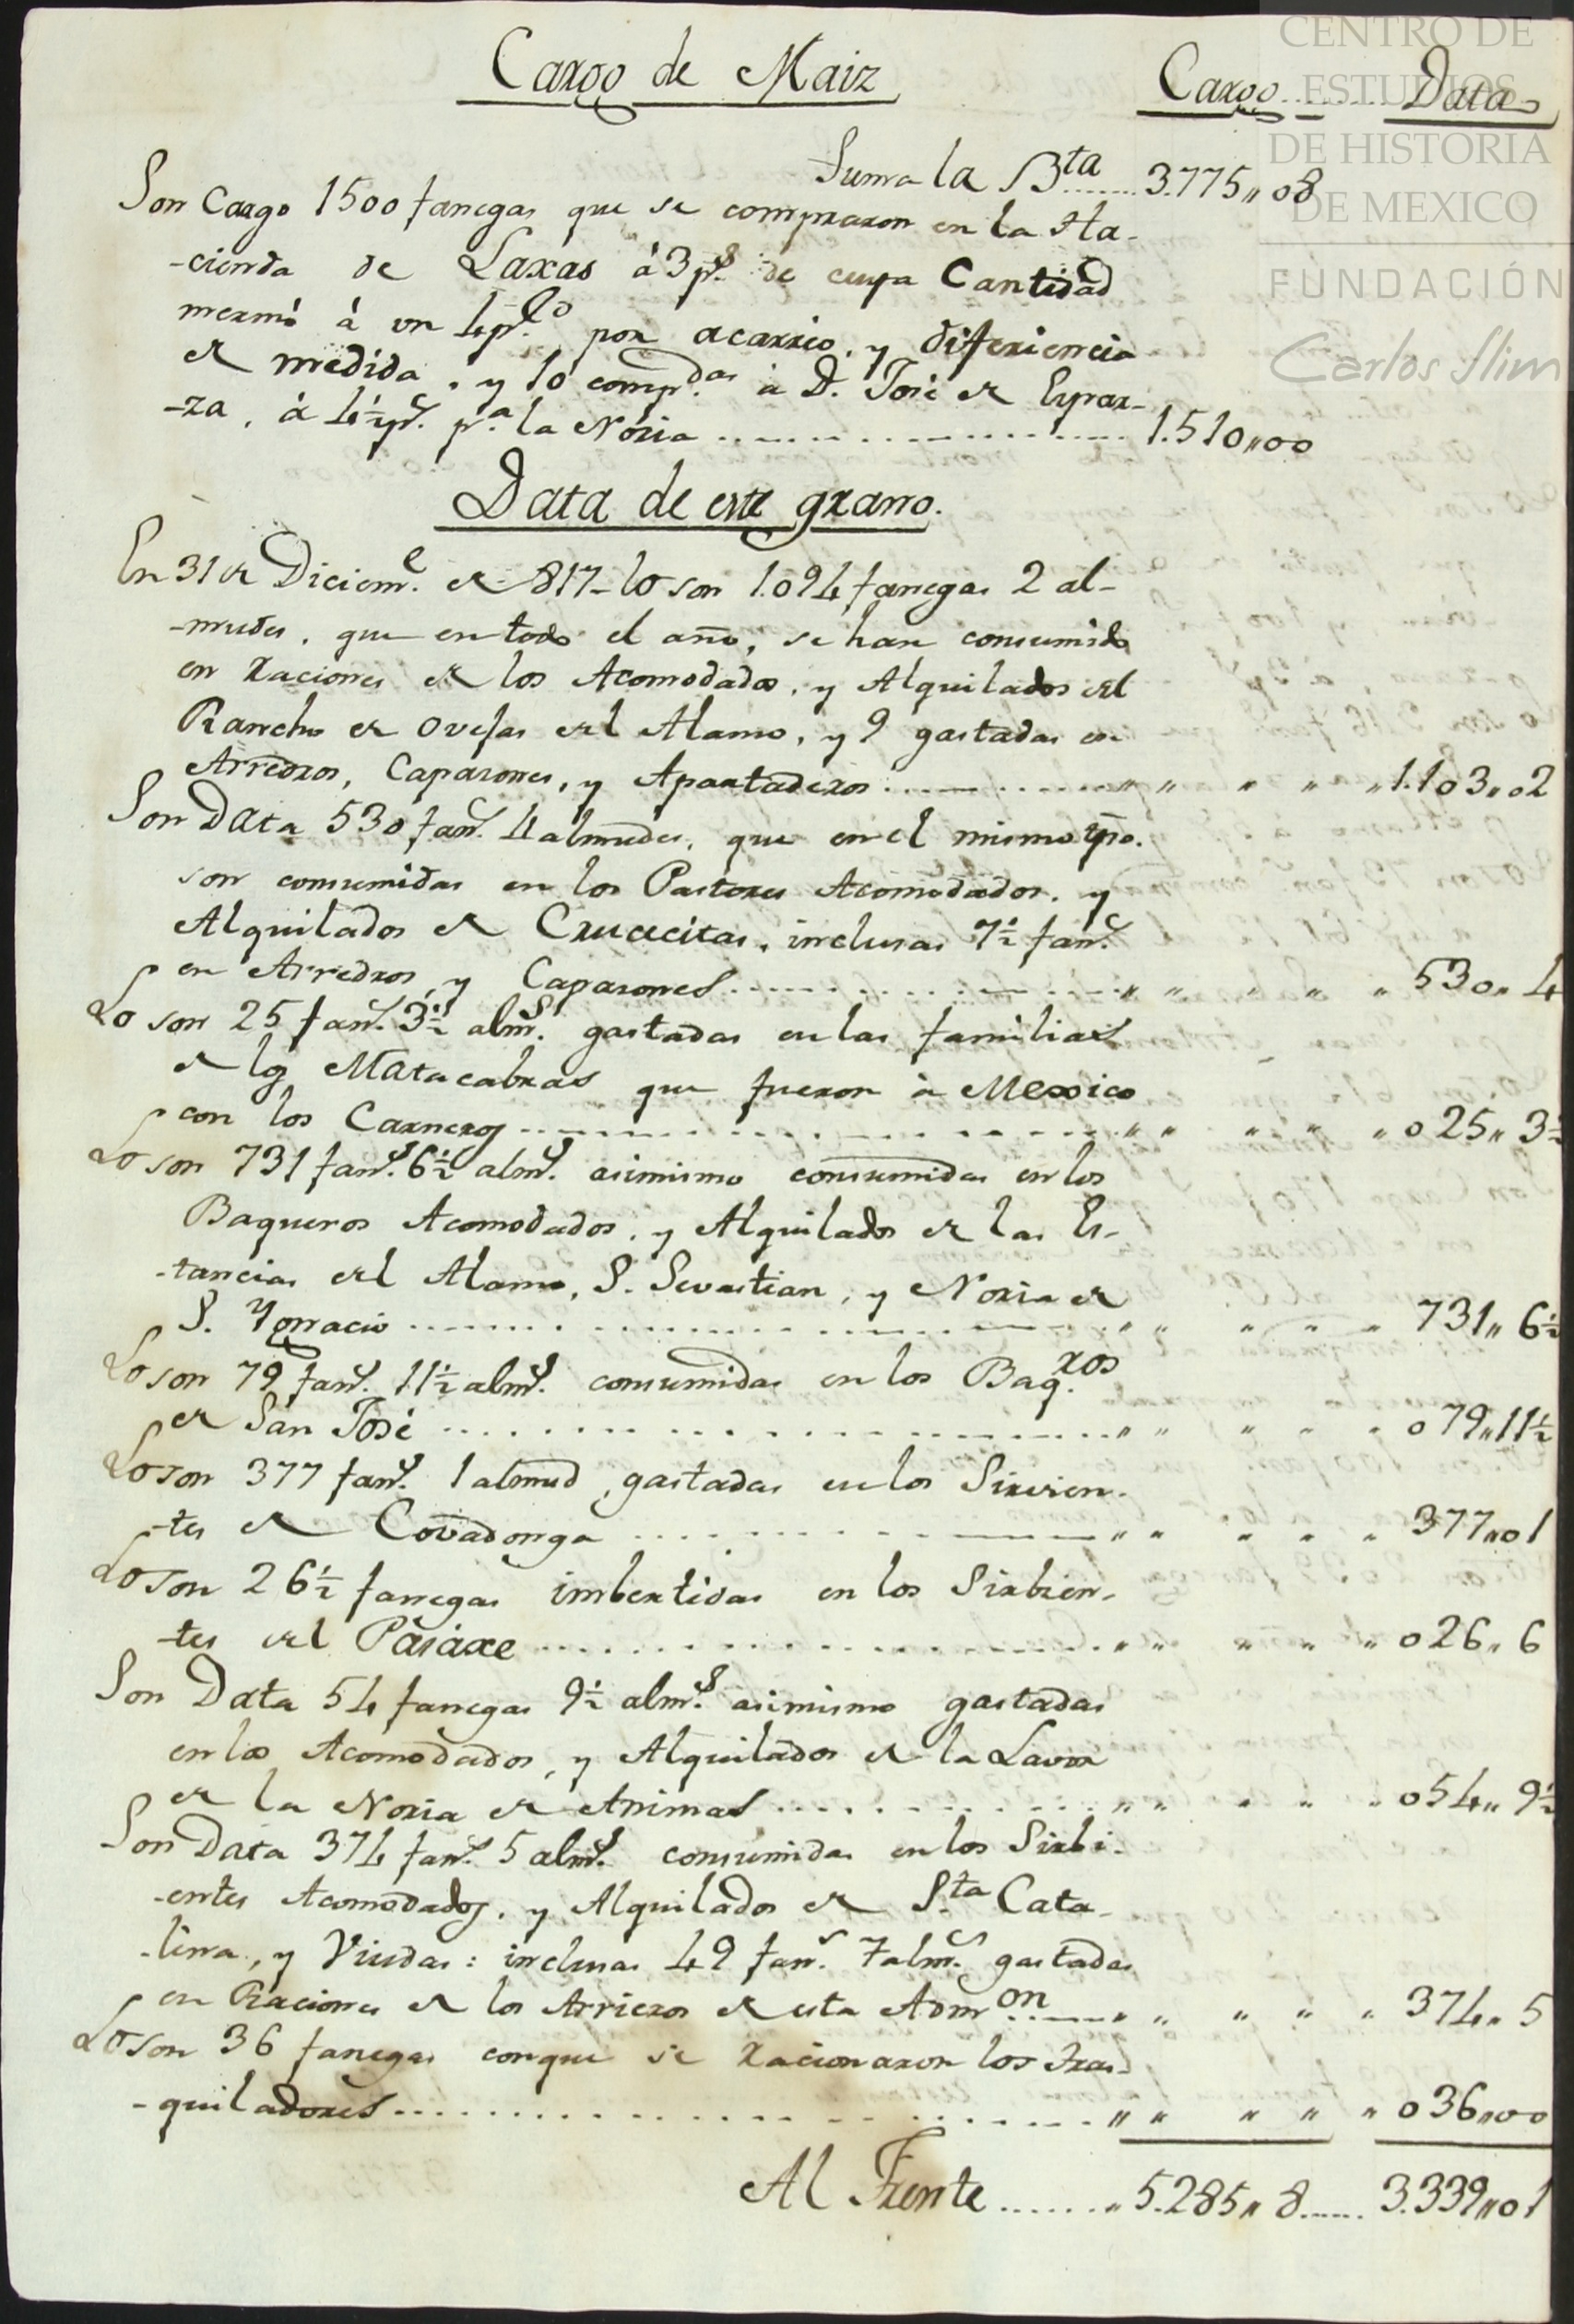 CENTRO DE
ESTUDIOS
DE HISTORIA
DE MEXICO
FUNDACIÓN
Carlos Slim
Cargo de Maiz Cargo ........ Data
Suma la B.ta ........ 3.775,, 08
Son Cargo 1500 fanegas que se compraron en la Ha-
-cienda de Laxas á 3 p.s de cuya Cantidad
mermó á un 4 p.Co por acarreo, y diferiencia
de medida, y 10 comp.das á D. José de Espar-
-za, á 4½ p.s p.a la Noria ........ 1.510,,00
Data de este grano.
En 31 de Diciem.e de 817- lo son 1.094 fanegas 2 al-
-mudes, que en todo el año, se han consumido
en raciones de los Acomodados, y Alquilados del
Rancho de Ovejas del Alamo, y 9 gastadas en
Arredros, Caparones, y Apartaderos ........ ,, ,, ,, ,, ,, 1.103,,02
Son Data 530 fan.s 4 almudes, que en el mismo tpo.
son consumidas en los Pastores Acomodados, y
Alquilados de Crucecitas, inclusas 7½ fan.s
en Arredros, y Caparones ........ ,, ,, ,, ,, ,, 530,, 4
Lo son 25 fan.s 3½ alm.s gastadas en las familias
de los Matacabras que fueron á Mexico
con los Carneros ........ ,, ,, ,, ,, ,, 025,, 3½
Lo son 731 fan.s 6½ alm.s asimismo consumidas en los
Baqueros Acomodados, y Alquilados de las Es-
-tancias del Alamo, S. Sevastian, y Noria de
S. Ygnacio ........ ,, ,, ,, ,, ,, 731,, 6½
Lo son 79 fan.s 11½ alm.s consumidas en los Baq.ros
de San José ........ ,, ,, ,, ,, ,, 079,,11½
Lo son 377 fan.s 1 almud, gastadas en los Sirvien-
-tes de Covadonga ........ ,, ,, ,, ,, ,, 377,,01
Lo son 26½ fanegas imbertidas en los Sirbien-
-tes del Pajaxe ........ ,, ,, ,, ,, ,, 026,, 6
Son Data 54 fanegas 9½ alm.s asimismo gastadas
en los Acomodados, y Alquilados de la Lavor
de la Noria de Animas ........ ,, ,, ,, ,, ,, 054,, 9½
Son Data 374 fan.s 5 alm.s consumidas en los Sirbi-
-entes Acomodados, y Alquilados de S.ta Cata-
-lina, y Viudas: inclusas 49 fan.s 7 alm.s gastadas
en Raciones de los Arrieros de esta Adm.on ........ ,, ,, ,, ,, ,, 374,, 5
Lo son 36 fanegas con que se racionaron los tras-
-quiladores ........ ,, ,, ,, ,, ,, 036,,00
Al Frente ........ ,, 5.285,, 8 ...... 3.339,,01